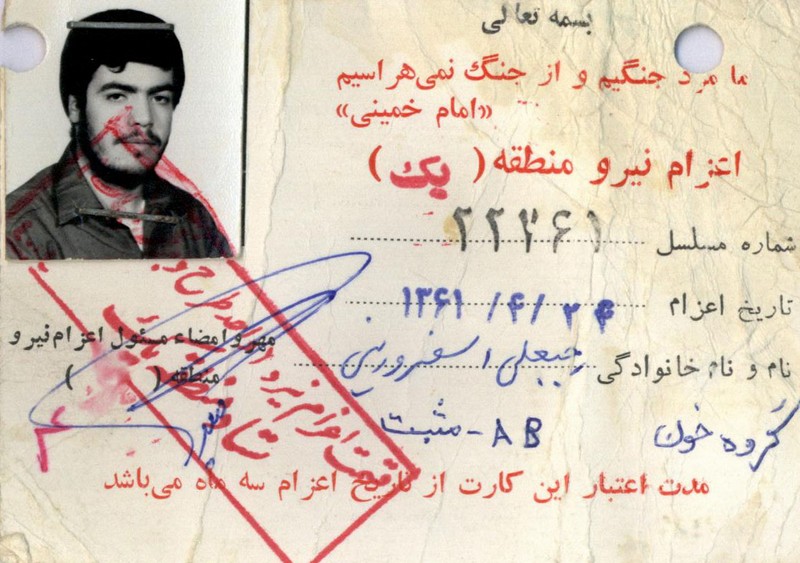 بسمه تعالی
ما مرد جنگیم و از جنگ نمی‌هراسیم
«امام خمینی»
اعزام نیرو منطقه ( یک )
شماره مسلسل ۲۲۲۶۱
تاریخ اعزام ۱۳۶۱/۴/۲۴
نام و نام خانوادگی رجبعلی اسفرورینی
گروه خون AB - مثبت
مدت اعتبار این کارت از تاریخ اعزام سه ماه می‌باشد
مهر و امضاء مسئول اعزام نیرو
منطقه ( )